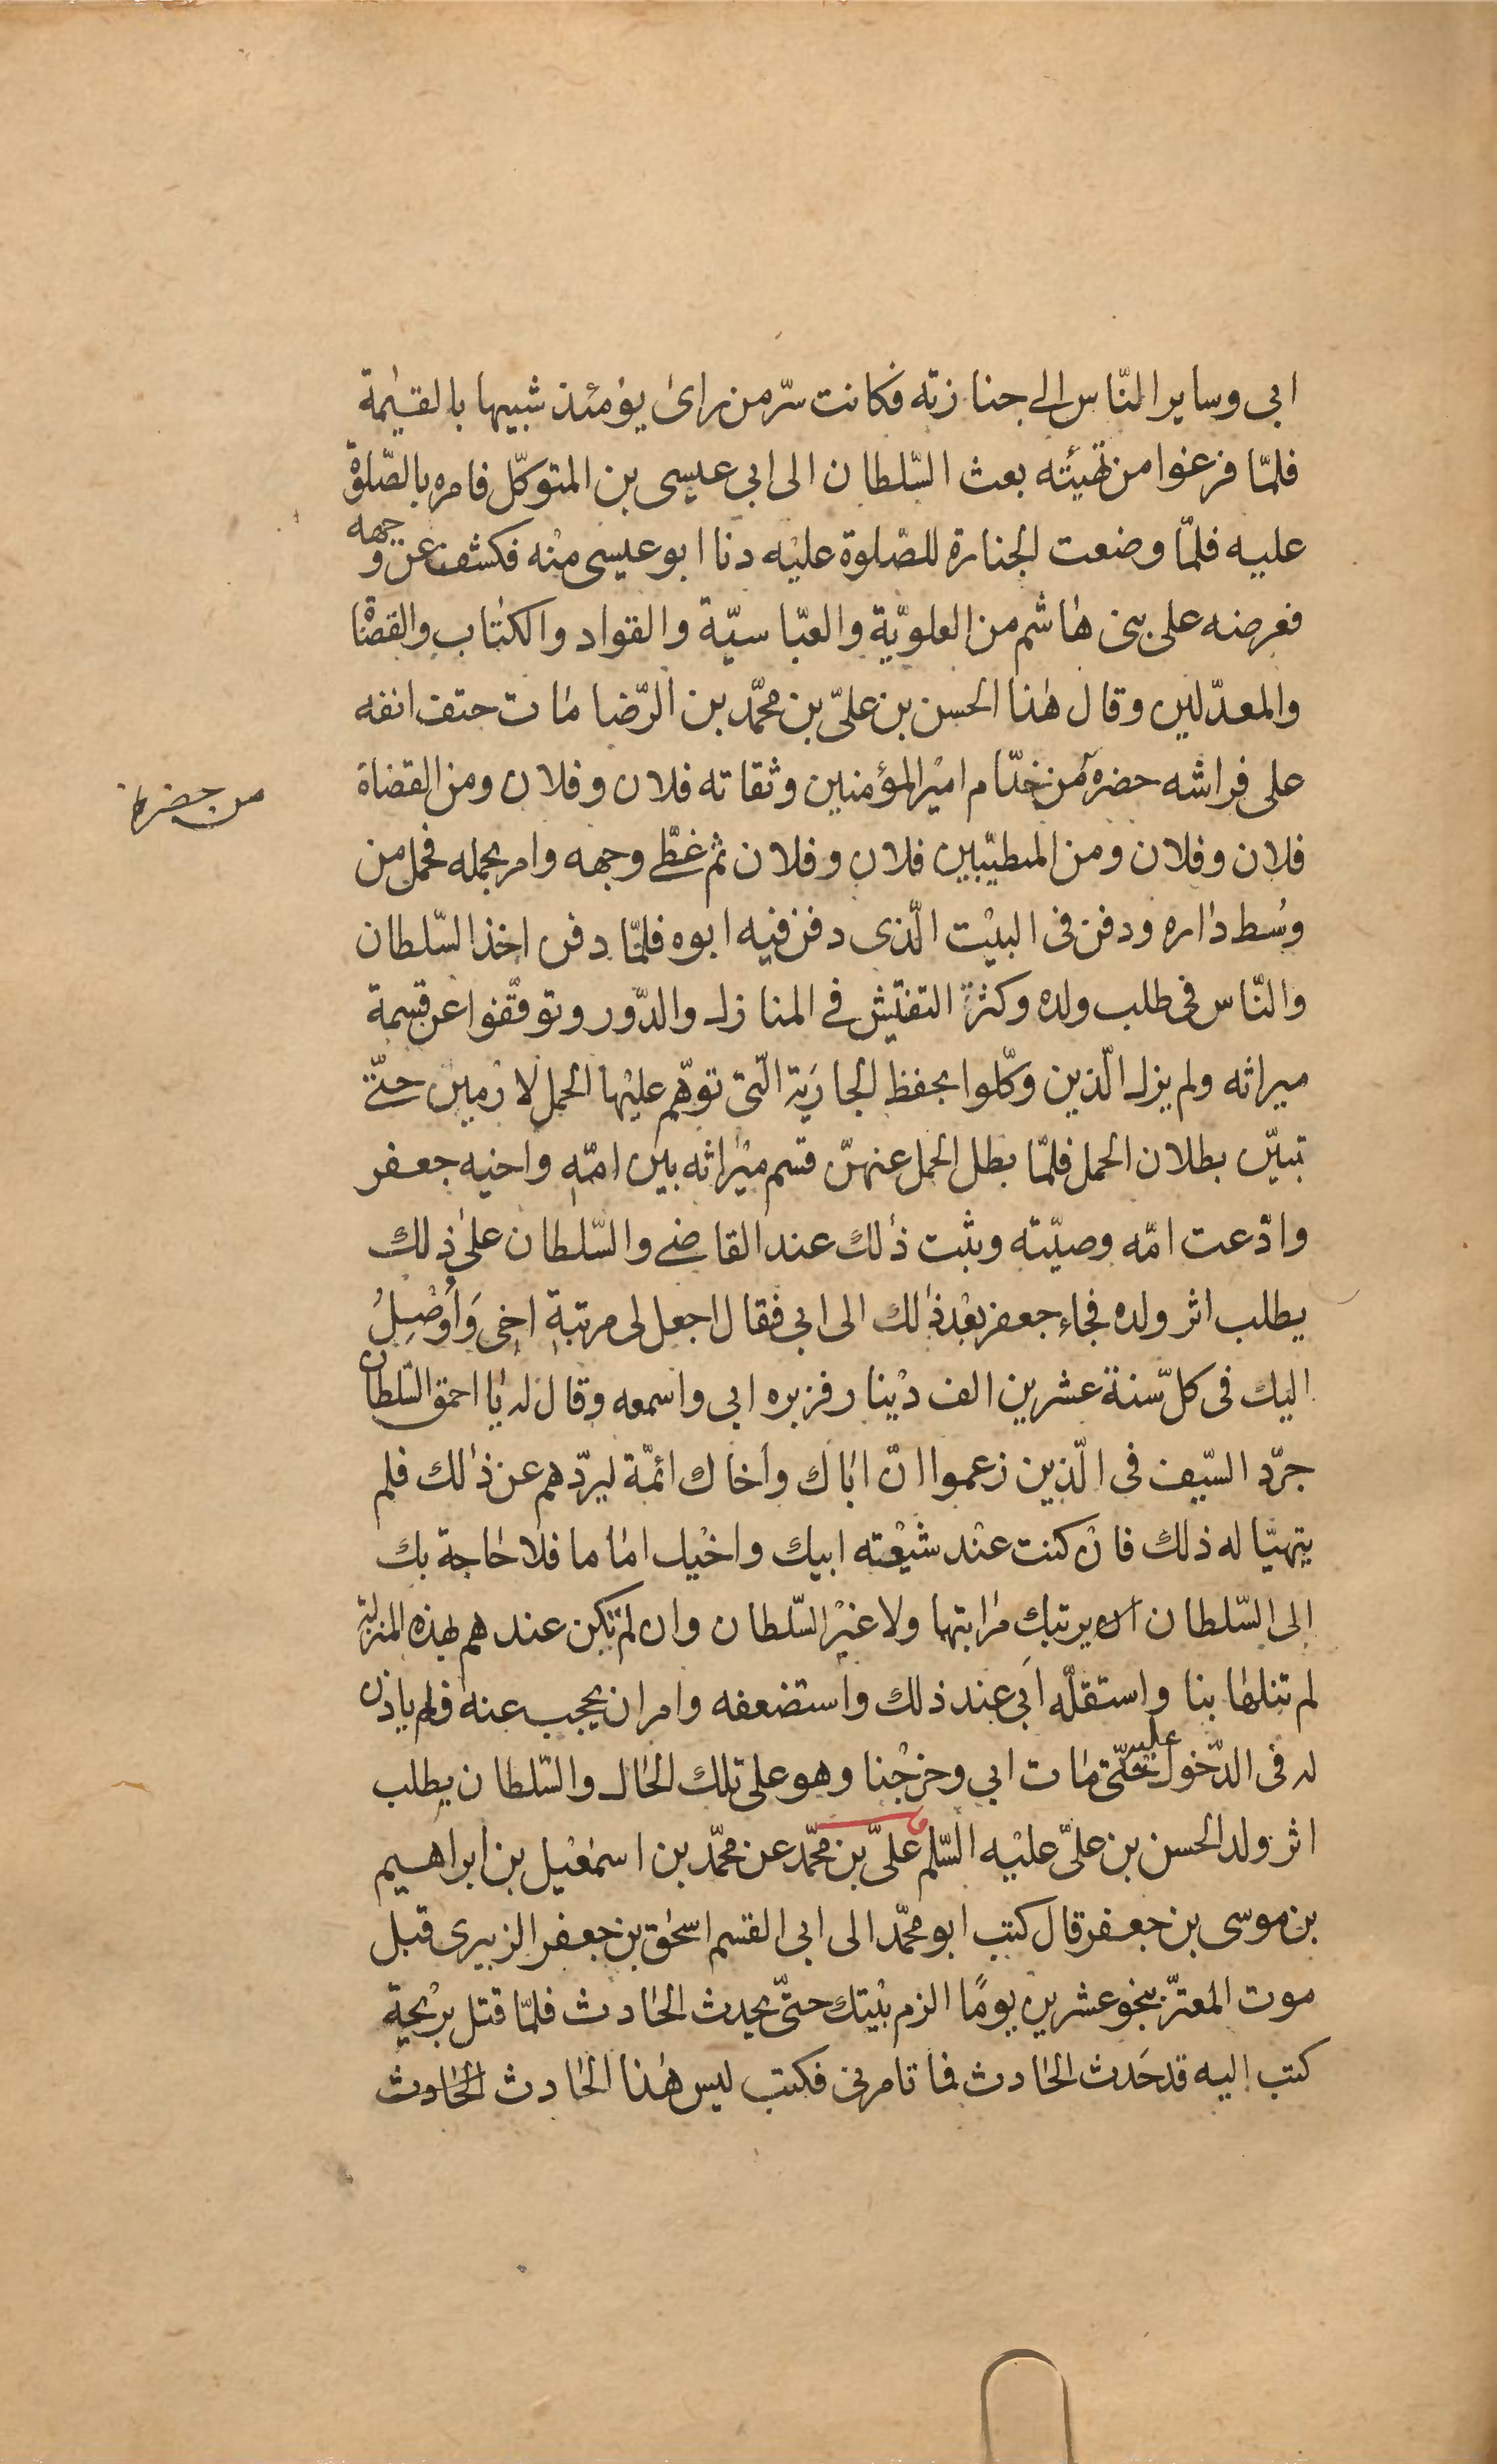 ابى وساير النّاس الى جنازته فكانت سرّ من راى يومئذ شبيها بالقيمة
فلمّا فرغوا من تهيئته بعث السّلطان الى ابى عيسى بن المتوكّل فامره بالصّلوة
عليه فلمّا وضعت الجنازة للصّلوة عليه دنا ابو عيسى منه فكشف عن وجهه
فعرضه على بنى هاشم من العلويّة والعبّاسيّة والقواد والكتاب والقضاة
والمعدّلين وقال هذا الحسن بن علىّ بن محمّد بن الرّضا مات حتف انفه
على فراشه حضره من خدّام امير المؤمنين وثقاته فلان وفلان ومن القضاة
من حضره
فلان وفلان ومن المتطيّبين فلان وفلان ثم غطّى وجهه وامر بحمله فحمل من
وسط داره ودفن فى البيت الّذى دفن فيه ابوه فلمّا دفن اخذ السّلطان
والنّاس فى طلب ولده وكثرة التفتيش فى المنازل والدّور وتوقّفوا عن قسمة
ميراثه ولم يزل الّذين وكّلوا بحفظ الجارية الّتى توهّم عليها الحمل لازمين حتّى
تبيّن بطلان الحمل فلمّا بطل الحمل عنهنّ قسم ميراثه بين امّه واخيه جعفر
وادّعت امّه وصيّته وثبت ذلك عند القاضى والسّلطان على ذلك
يطلب اثر ولده فجاء جعفر بعد ذلك الى ابى فقال اجعل لى مرتبة اخى وَأُوصِلُ
اليك فى كلّ سنة عشرين الف دينار فزبره ابى واسمعه وقال له يا احمق السّلطان
جرّد السّيف فى الّذين زعموا انّ اباك واخاك ائمّة ليردّهم عن ذلك فلم
يتهيّا له ذلك فان كنت عند شيعته ابيك واخيك اماما فلا حاجة بك
الى السّلطان ان يرتبك مراتبها ولا غير السّلطان وان لم تكن عندهم بهذه المنزلة
لم تنلها بنا واستقلّه ابى عند ذلك واستضعفه وامر ان يحجب عنه فلم ياذن
له فى الدّخول عليه حتّى مات ابى وخرجنا وهو على تلك الحال والسّلطان يطلب
اثر ولد الحسن بن علىّ عليه السّلم علىّ بن محمّد عن محمّد بن اسمعيل بن ابراهيم
بن موسى بن جعفر قال كتب ابو محمّد الى ابى القسم اسحق بن جعفر الزبيرى قبل
موت المعتزّ بنحو عشرين يومًا الزم بيتك حتّى يحدث الحادث فلمّا قتل بريحة
كتب اليه قد حدث الحادث فما تامرنى فكتب ليس هذا الحادث الحادث